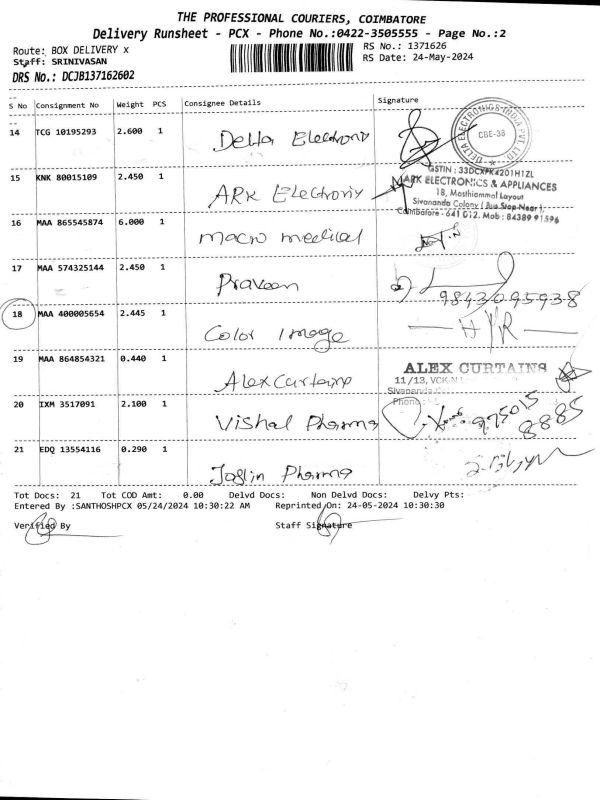 THE PROFESSIONAL COURIERS, COIMBATORE
Delivery Runsheet - PCX - Phone No.:0422-3505555 - Page No.:2
Route: BOX DELIVERY x RS No.: 1371626
Staff: SRINIVASAN RS Date: 24-May-2024
DRS No.: DCJB137162602
S No Consignment No Weight PCS Consignee Details Signature
14 TCG 10195293 2.600 1 Delta Electroniy
DELTA ELECTRONICS INDIA PVT. LTD.
CBE-38
15 KNK 80015109 2.450 1 ARK Electroniy
GSTIN : 33DCXPK4201H1ZL
MARK ELECTRONICS & APPLIANCES
18, Masthiammal Layout
Sivananda Colony ( Bus Stop Near ),
Coimbatore - 641 012. Mob : 84389 91596
16 MAA 865545874 6.000 1 macro medical
17 MAA 574325144 2.450 1 Praveen
9843095938
18 MAA 400005654 2.445 1 Color Image
19 MAA 864854321 0.440 1 Alex Curtains
ALEX CURTAINS
11/13, VCK
Sivananda
Phone
20 IXM 3517091 2.100 1 Vishal Pharma
975015
8885
21 EDQ 13554116 0.290 1 Joslin Pharma
Tot Docs: 21 Tot COD Amt: 0.00 Delvd Docs: Non Delvd Docs: Delvy Pts:
Entered By :SANTHOSHPCX 05/24/2024 10:30:22 AM Reprinted On: 24-05-2024 10:30:30
Verified By Staff Signature